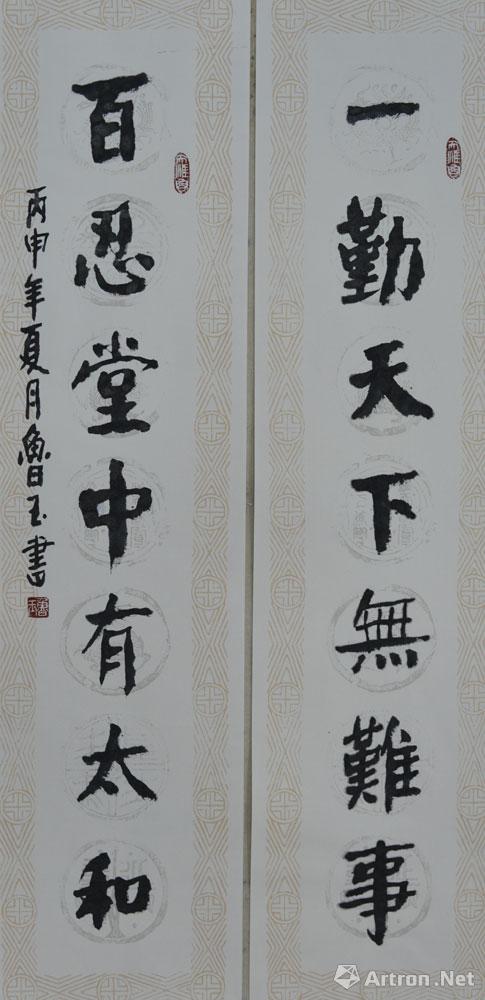 一勤天下無難事
百忍堂中有太和
丙申年夏月魯玉書
Artron.Net